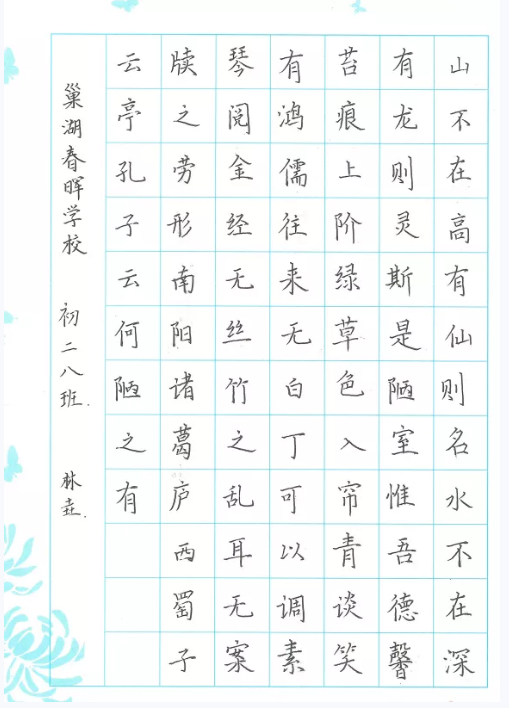 山不在高有仙则名水不在深
有龙则灵斯是陋室惟吾德馨
苔痕上阶绿草色入帘青谈笑
有鸿儒往来无白丁可以调素
琴阅金经无丝竹之乱耳无案
牍之劳形南阳诸葛庐西蜀子
云亭孔子云何陋之有
巢湖春晖学校 初二八班. 林垚.